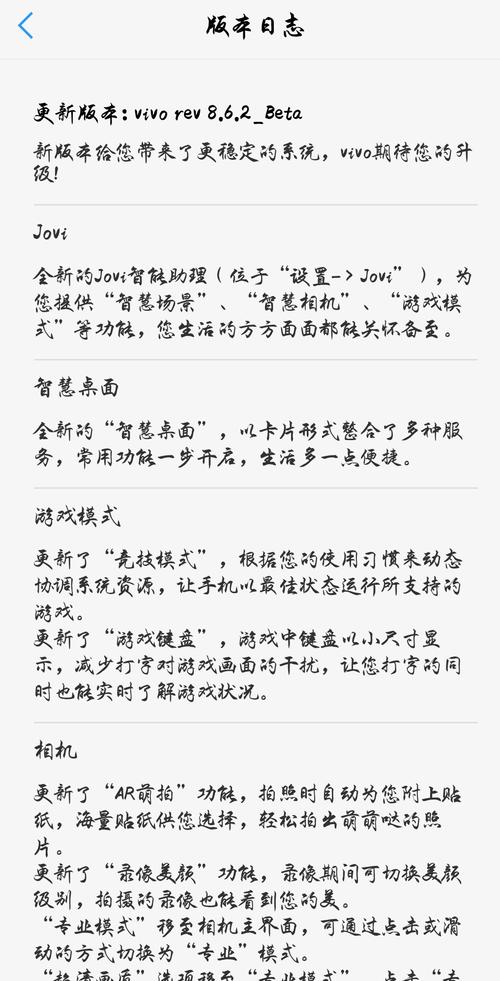 版本日志
更新版本：vivo rev 8.6.2_Beta
新版本给您带来了更稳定的系统，vivo期待您的升
级！
Jovi
全新的Jovi智能助理（位于“设置-> Jovi”），为
您提供“智慧场景”、“智慧相机”、“游戏模
式”等功能，您生活的方方面面都能关怀备至。
智慧桌面
全新的“智慧桌面”，以卡片形式整合了多种服
务，常用功能一步开启，生活多一点便捷。
游戏模式
更新了“竞技模式”，根据您的使用习惯来动态
协调系统资源，让手机以最佳状态运行所支持的
游戏。
更新了“游戏键盘”，游戏中键盘以小尺寸显
示，减少打字对游戏画面的干扰，让您打字的同
时也能实时了解游戏状况。
相机
更新了“AR萌拍”功能，拍照时自动为您附上贴
纸，海量贴纸供您选择，轻松拍出萌萌哒的照
片。
更新了“录像美颜”功能，录像期间可切换美颜
级别，拍摄的录像也能看到您的美。
“专业模式”移至相机主界面，可通过点击或滑
动的方式切换为“专业”模式。
“超清画质”选项移至“专业模式”，点击“专